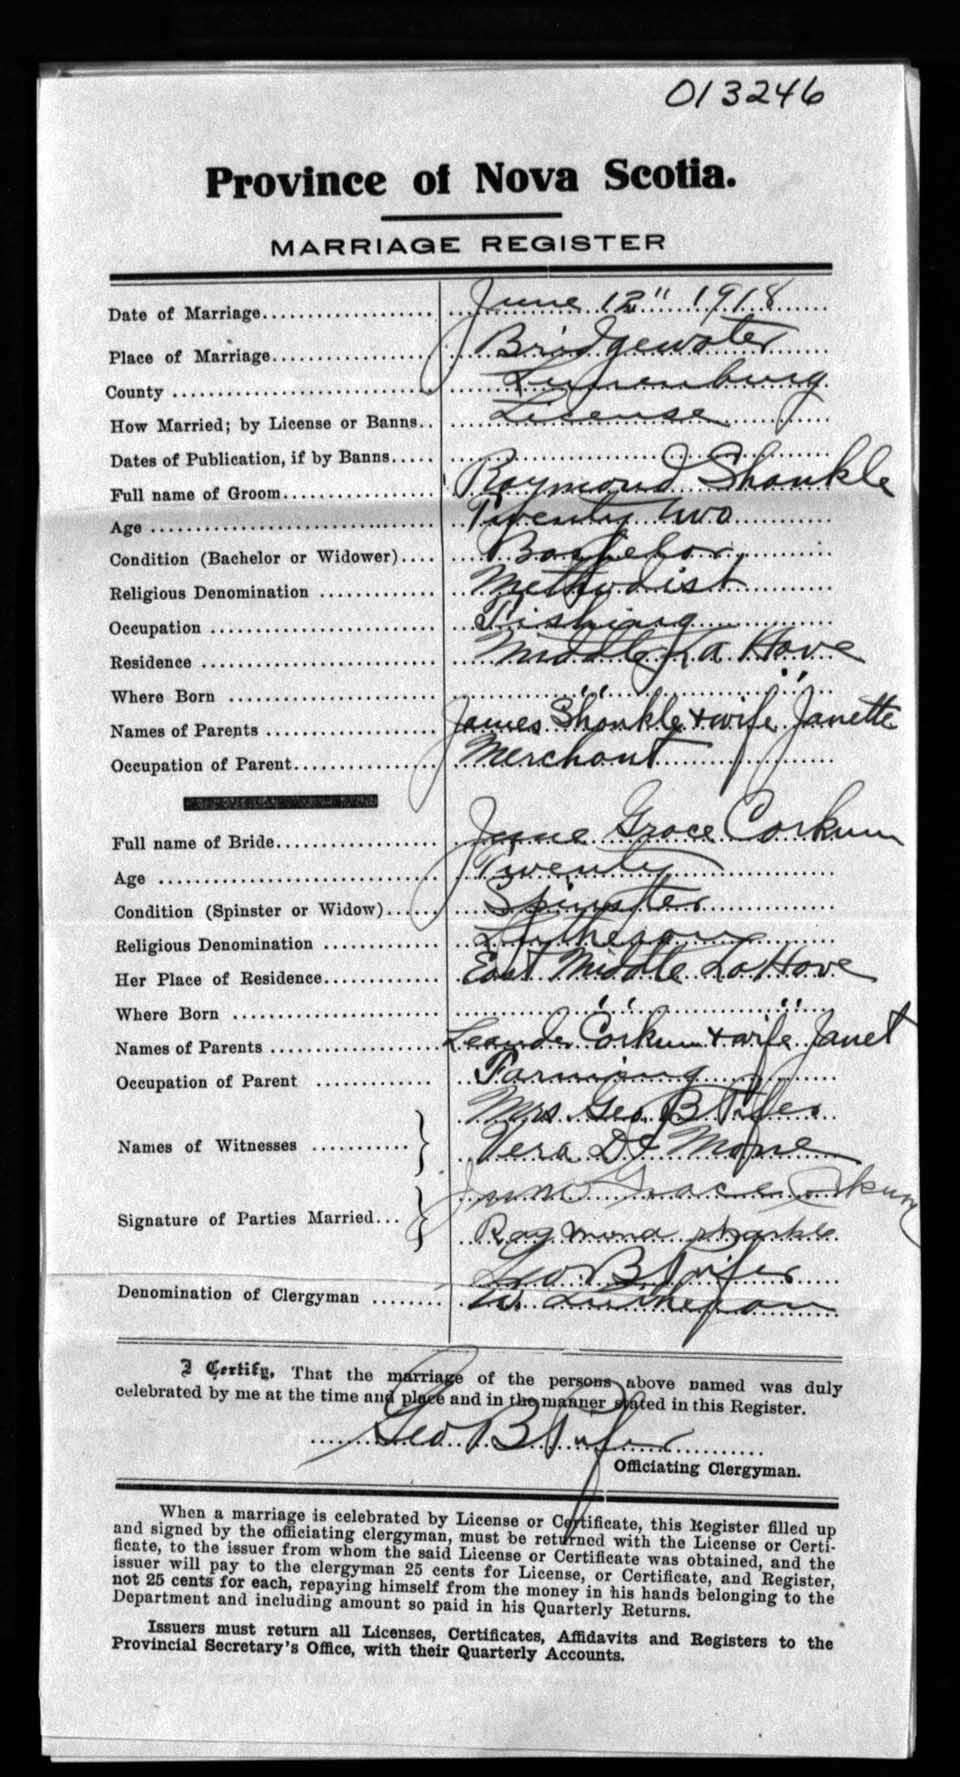 013246
Province of Nova Scotia.
MARRIAGE REGISTER
Date of Marriage.................... June 12" 1918
Place of Marriage.................. Bridgewater
County ............................ Lunenburg
How Married; by License or Banns.. License
Dates of Publication, if by Banns.....
Full name of Groom................. Raymond Shankle
Age ............................... Twenty two
Condition (Bachelor or Widower).... Bachelor
Religious Denomination ............ Methodist
Occupation ........................ Fishing
Residence ......................... Middle La Have
Where Born ........................ " "
Names of Parents .................. James Shankle & wife Janette
Occupation of Parent............... Merchant
Full name of Bride................. June Grace Corkum
Age ............................... Twenty
Condition (Spinster or Widow)...... Spinster
Religious Denomination ............ Lutheran
Her Place of Residence............. East Middle La Have
Where Born ........................ " "
Names of Parents .................. Leander Corkum & wife Janet
Occupation of Parent .............. Farming
Mrs. Geo B Pifer
Names of Witnesses ........... } Vera De Mone
Grace Corkum
Signature of Parties Married... } Raymond Shankle
Geo. B Pifer
Denomination of Clergyman ........ Lutheran
I Certify, That the marriage of the persons above named was duly
celebrated by me at the time and place and in the manner stated in this Register.
Geo B Pifer
Officiating Clergyman.
When a marriage is celebrated by License or Certificate, this Register filled up
and signed by the officiating clergyman, must be returned with the License or Certi-
ficate, to the issuer from whom the said License or Certificate was obtained, and the
issuer will pay to the clergyman 25 cents for License, or Certificate, and Register,
not 25 cents for each, repaying himself from the money in his hands belonging to the
Department and including amount so paid in his Quarterly Returns.
Issuers must return all Licenses, Certificates, Affidavits and Registers to the
Provincial Secretary's Office, with their Quarterly Accounts.